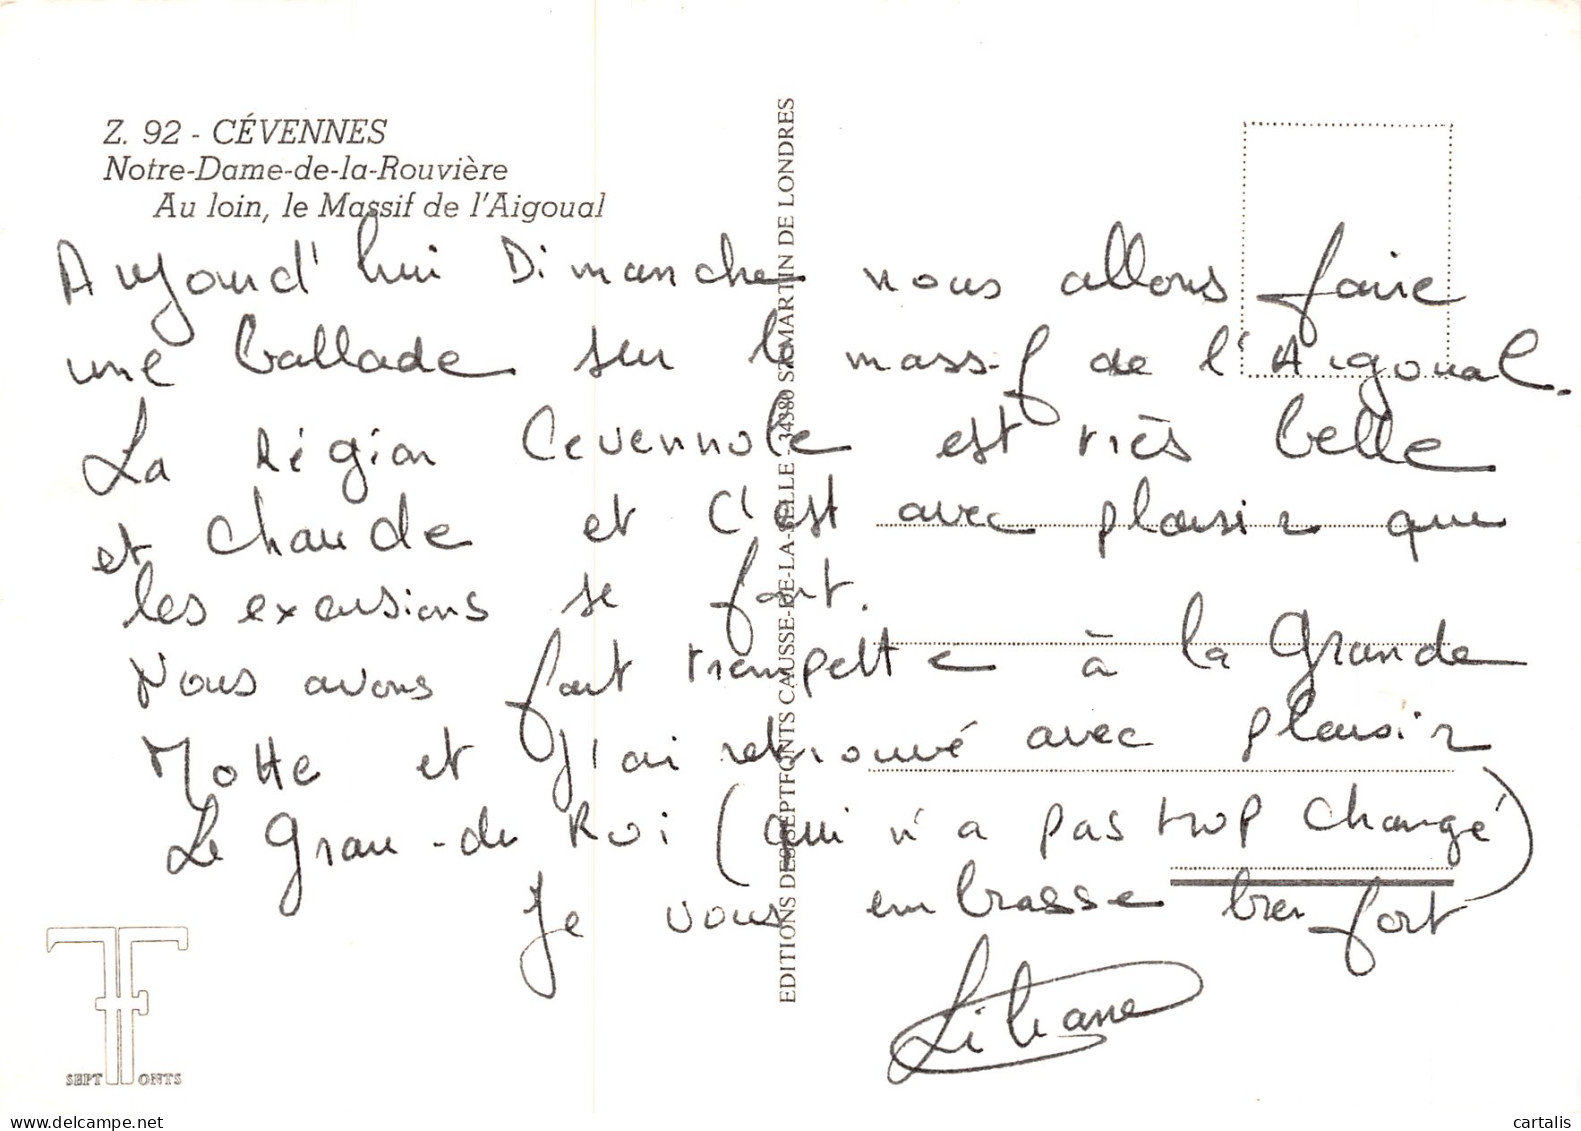 Z. 92 - CÉVENNES
Notre-Dame-de-la-Rouvière
Au loin, le Massif de l'Aigoual
Aujourd'hui Dimanche nous allons faire
une ballade sur le massif de l'Aigoual.
La Région Cevennole est très belle
et chaude et c'est avec plaisir que
les excursions se font.
Nous avons fait trempette à la Grande
Motte et j'ai retrouvé avec plaisir
Le Grau-du Roi (qui n'a pas trop changé)
Je vous embrasse bien fort
Liliane
EDITIONS DES SEPTFONTS CAUSSE-DE-LA-SELLE - 34380 ST-MARTIN DE LONDRES
SEPT FONTS
www.delcampe.net
cartalis